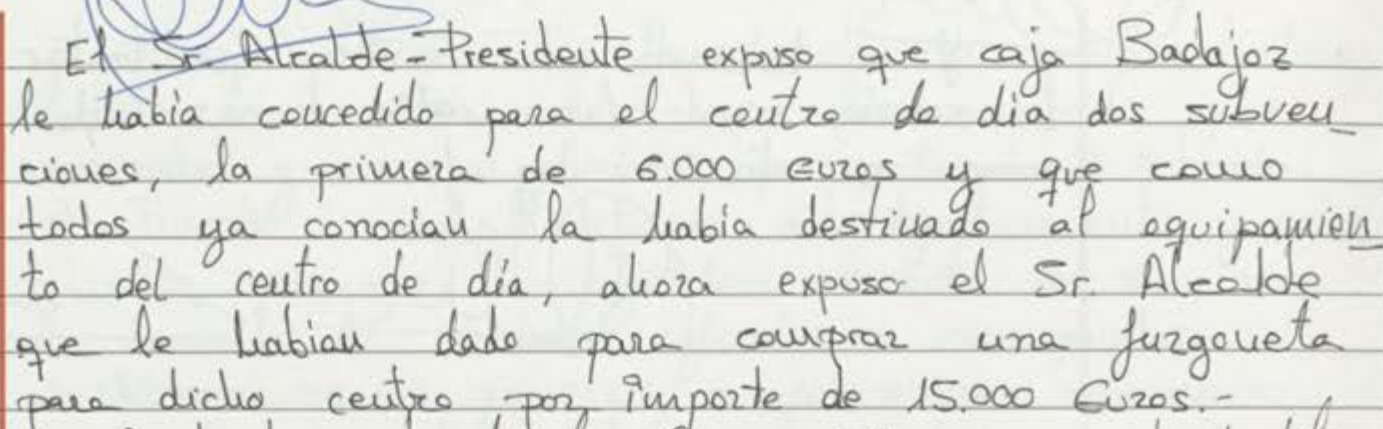 El Sr. Alcalde-Presidente expuso que caja Badajoz
le habia concedido para el centro de dia dos subven_
ciones, la primera de 6.000 Euros y que como
todos ya conocian la habia destinado al equipamien_
to del centro de día, ahora expuso el Sr. Alcalde
que le habian dado para comprar una furgoneta
para dicho centro por importe de 15.000 Euros.-